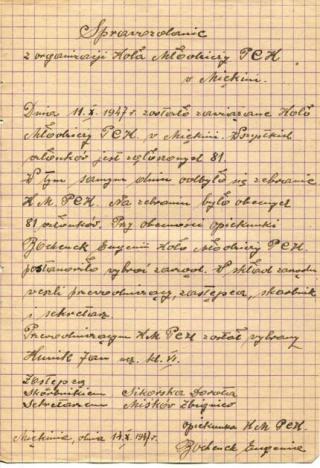 Sprawozdanie
z organizacji Koła Młodzieży PCK
w Miękini.
Dnia 11.X.1947 r. zostało zawiązane Koło
Młodzieży PCK w Miękini. Wszystkich
członków jest zgłoszonych 81.
W tym samym dniu odbyło się zebranie
K.M. PCK. Na zebraniu było obecnych
81 członków. Przy obecności opiekunki
Bochenek Eugenii Koło Młodzieży PCK
postanowiło wybrać zarząd. W skład zarządu
weszli przewodniczący, zastępca, skarbnik
i sekretarz.
Przewodniczącym K.M. PCK został wybrany
Jan ucz. kl. VI.
Zastępcą
Skarbnikiem Sikorska Dorota
Sekretarzem Miśków Zbigniew
Opiekunka K.M. PCK.
Miękinia, dnia 1947 r.
Bochenek Eugenia